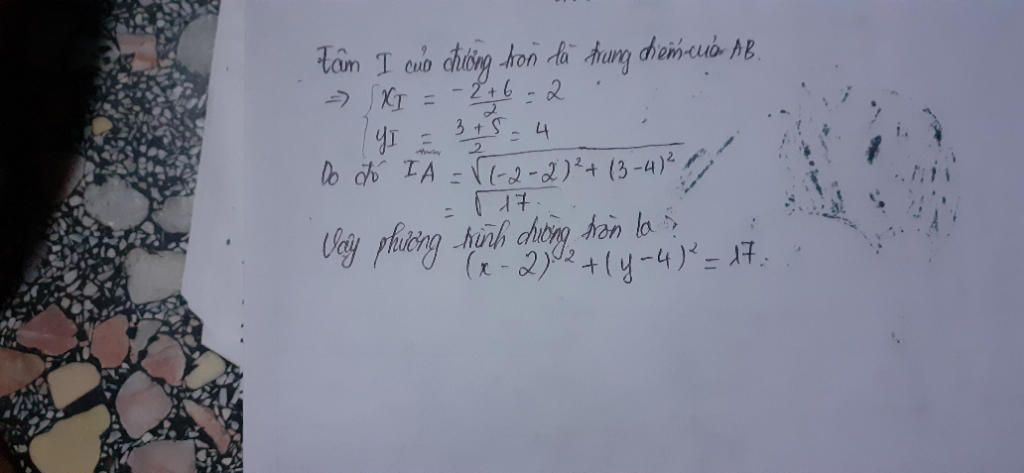 Tâm I của đường tròn là trung điểm của AB.
⇒ { x_I = \frac{-2+6}{2} = 2
y_I = \frac{3+5}{2} = 4
Do đó IA = \sqrt{(-2-2)^2 + (3-4)^2}
= \sqrt{17}.
Vậy phương trình đường tròn là :
(x-2)^2 + (y-4)^2 = 17.